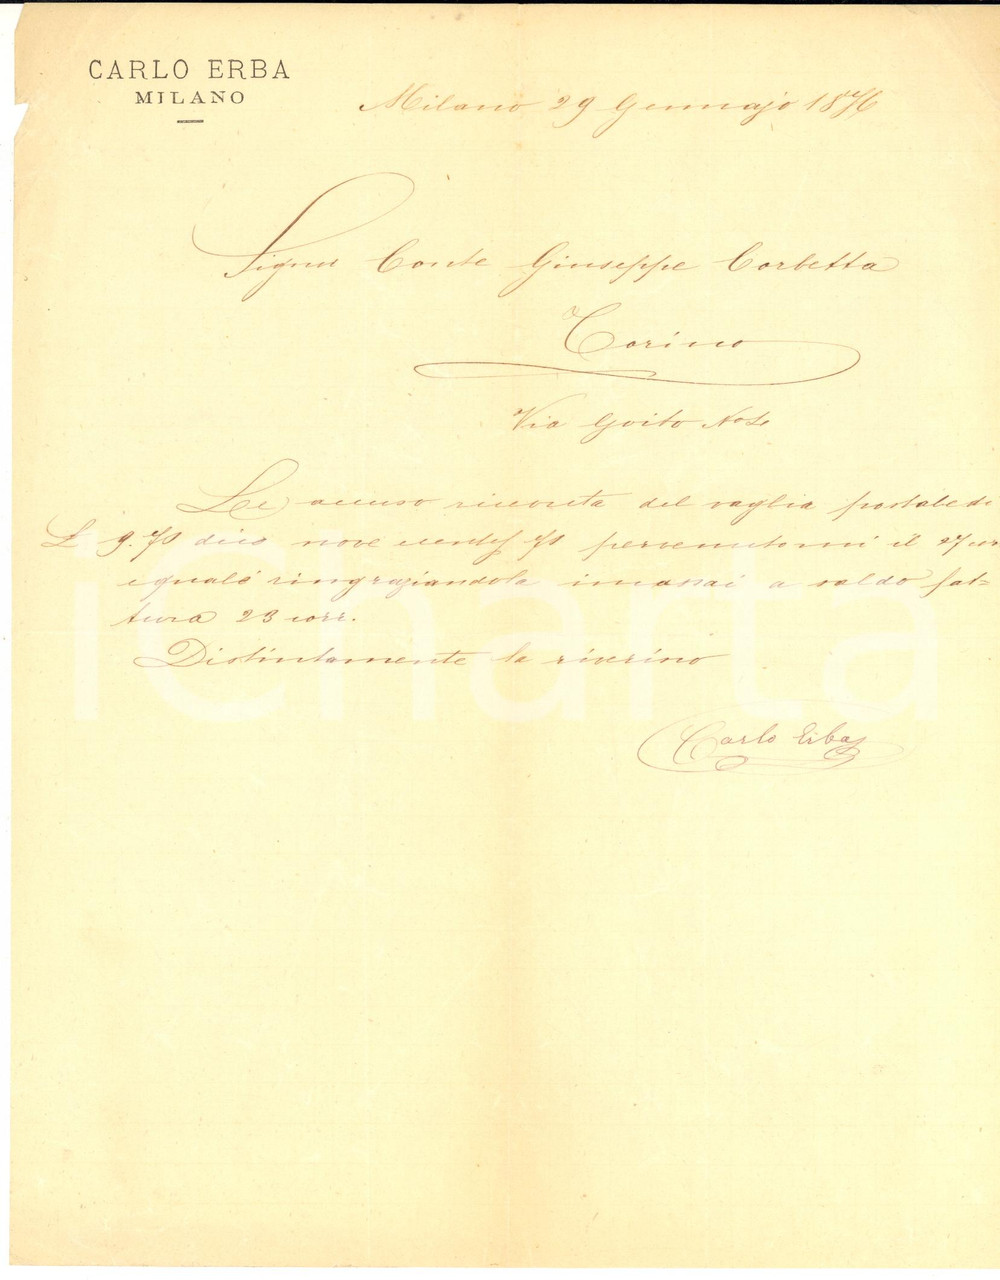 CARLO ERBA
MILANO
Milano 29 Gennajo 1876
Signor Conte Giuseppe Corbetta
Torino
Via Goito
Le accuso ricevuta del vaglia postale di
L 9.75 dico nove cent 75 pervenutomi il 27 cor
ringraziandola a saldo fat=
tura 23 corr.
Distintamente la riverisco
Carlo Erba
iCharta